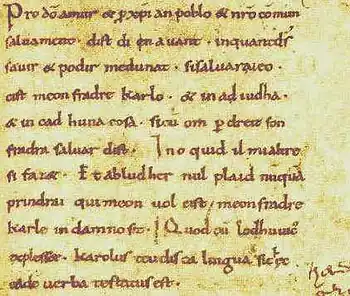 Pro dō amur & ꝑ xp̄ian poblo & nr̄o cōmun
saluament · dist di en auant · inquantd̄s
sauir & podir medunat · sisaluaraieo ·
cist meon fradre karlo · & in adiudha ·
& in cad huna cosa · sicū om ꝑ dreit son
fradra saluar dist · Ino quid il mialtre
si faz& · Et abludher nul plaid nūquā
prindrai qui meon uol cist · meonfradre
karle in damno sit · Quod cū lodhuuic
explesset · karolus teudisca lingua sic hec
eadē uerba testatus est ·